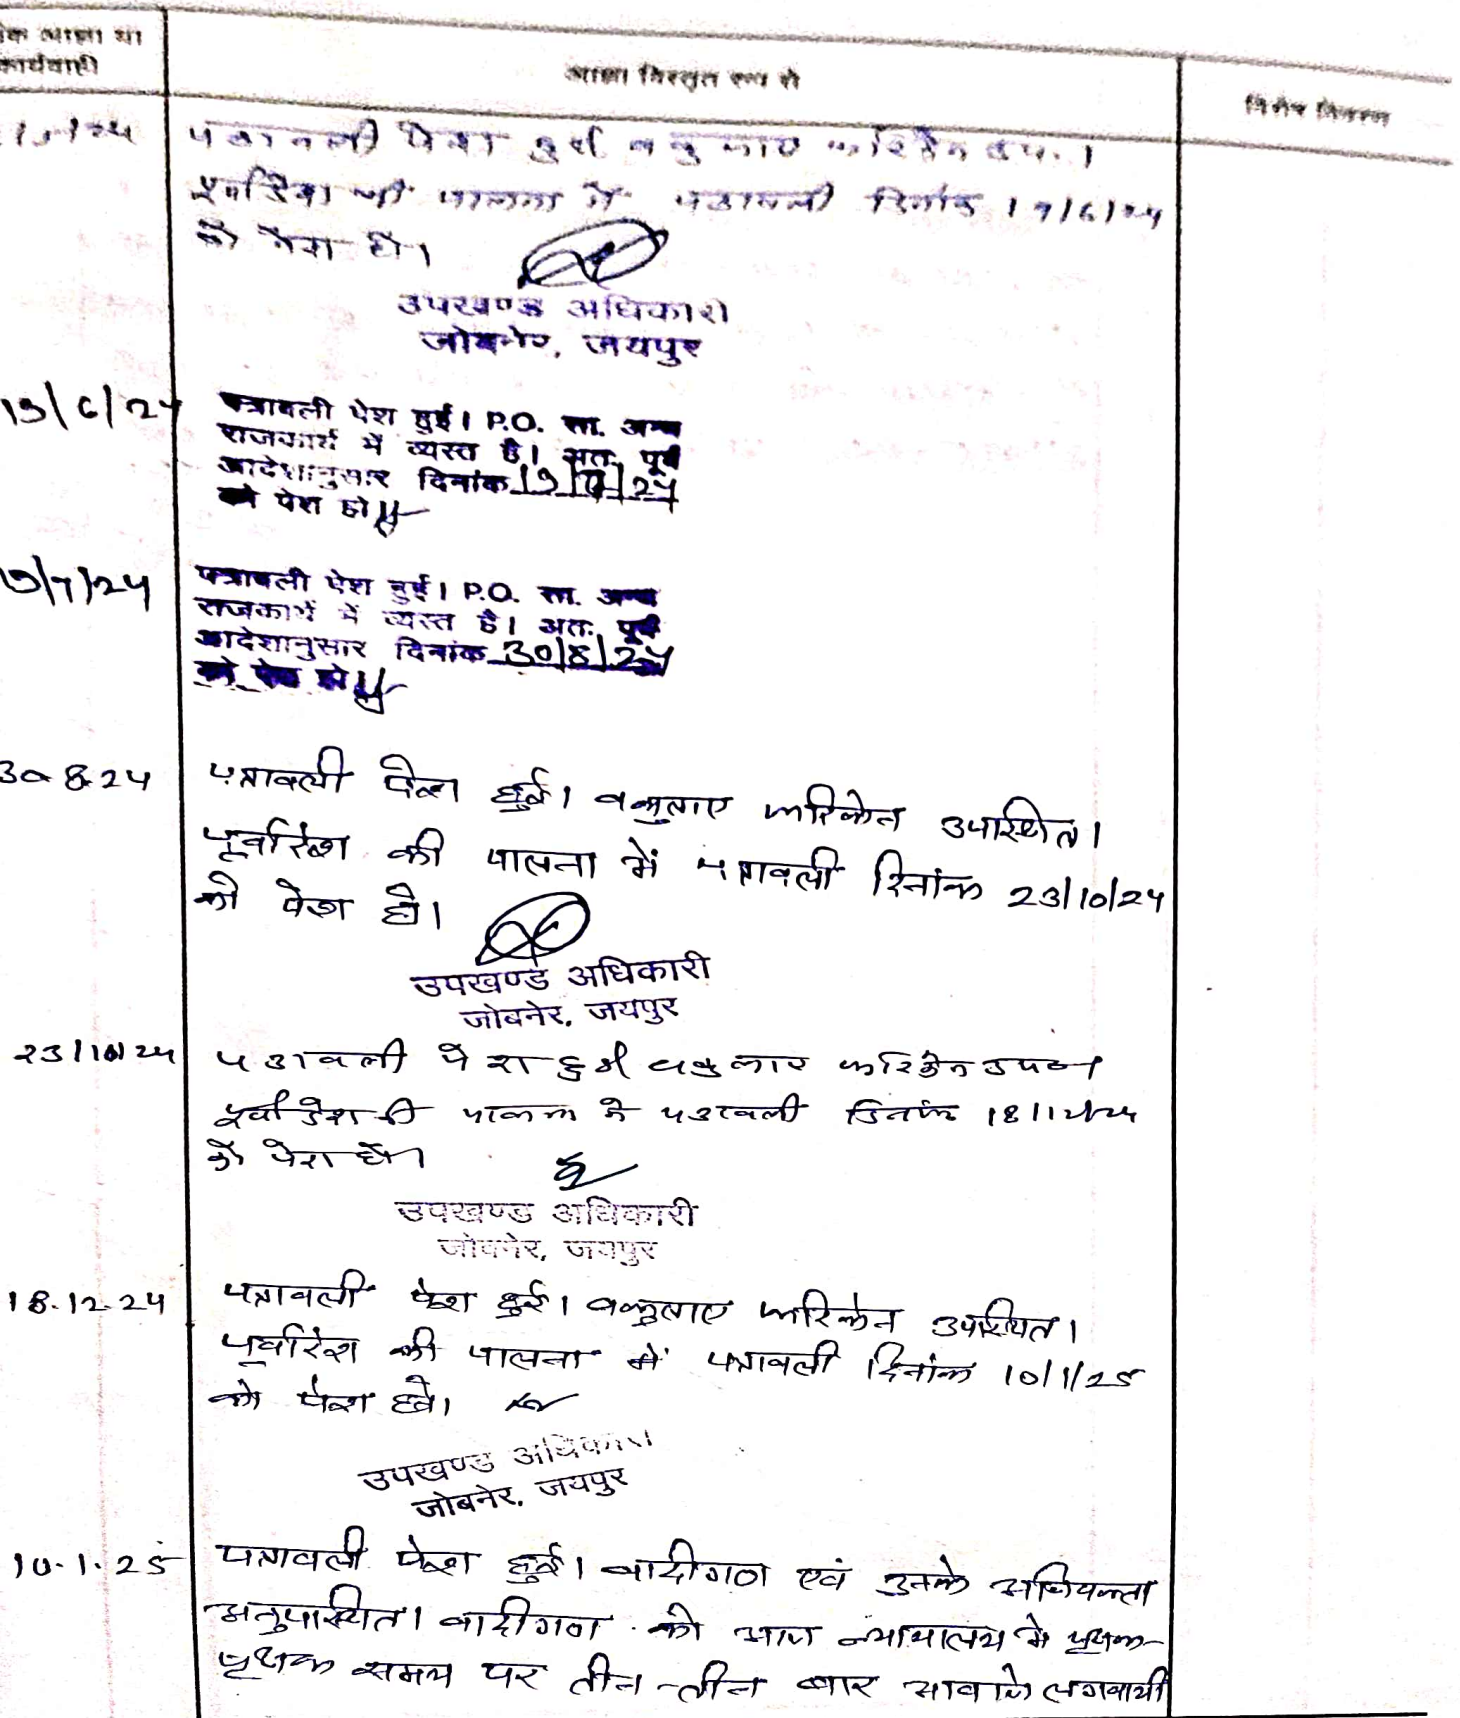 आज्ञा या
कार्यवाही
आज्ञा विस्तृत रूप से
विशेष विवरण
पत्रावली पेश हुई वकुलाए फरिकेन उप.।
पूर्वादेश की पालना में पत्रावली दिनांक 19/6/24
को पेश हो।
उपखण्ड अधिकारी
जोबनेर, जयपुर
19/6/24
पत्रावली पेश हुई। P.O. सा. अन्य
राजकार्य में व्यस्त है। अतः पूर्व
आदेशानुसार दिनांक 19/7/24
को पेश हो
19/7/24
पत्रावली पेश हुई। P.O. सा. अन्य
राजकार्य में व्यस्त है। अतः पूर्व
आदेशानुसार दिनांक 30/8/24
को पेश हो
30.8.24
पत्रावली पेश हुई। वकुलाए फरिकेन उपस्थित।
पूर्वादेश की पालना में पत्रावली दिनांक 23/10/24
को पेश हो।
उपखण्ड अधिकारी
जोबनेर, जयपुर
23/10/24
पत्रावली पेश हुई वकुलाए फरिकेन उप०।
पूर्वादेश की पालना में पत्रावली दिनांक 18/12/24
को पेश हो।
उपखण्ड अधिकारी
जोबनेर, जयपुर
18.12.24
पत्रावली पेश हुई। वकुलाए फरिकेन उपस्थित।
पूर्वादेश की पालना में पत्रावली दिनांक 10/1/25
को पेश होवे।
उपखण्ड अधिकारी
जोबनेर, जयपुर
10.1.25
पत्रावली पेश हुई। वादीगण एवं उनके अधिवक्ता
अनुपस्थित। वादीगण को आज न्यायालय में पृथक-
पृथक समय पर तीन-तीन बार आवाजे लगवायी